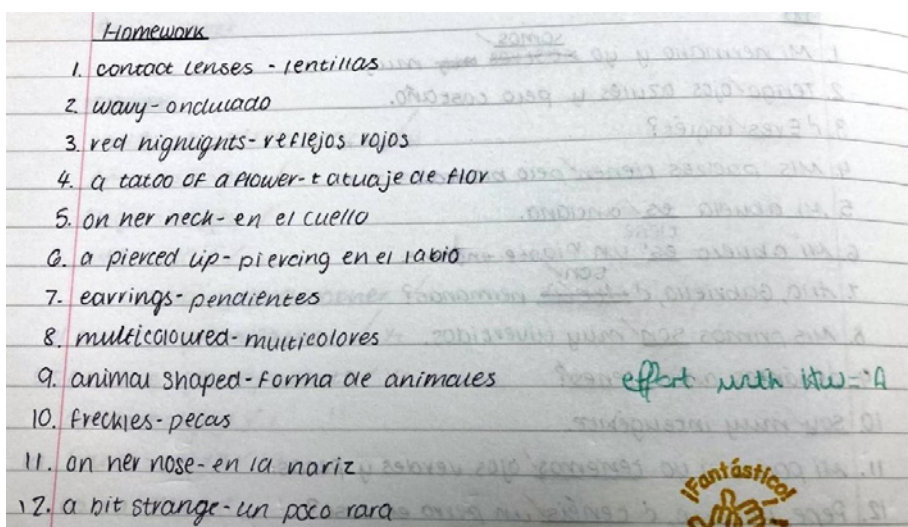 Homework
1. contact lenses - lentillas
2. wavy - ondulado
3. red highlights - reflejos rojos
4. a tatoo of a flower - tatuaje de flor
5. on her neck - en el cuello
6. a pierced lip - piercing en el labio
7. earrings - pendientes
8. multicoloured - multicolores
9. animal shaped - forma de animales
effort with HW = 'A
10. freckles - pecas
11. on her nose - en la nariz
12. a bit strange - un poco rara
¡Fantástico!